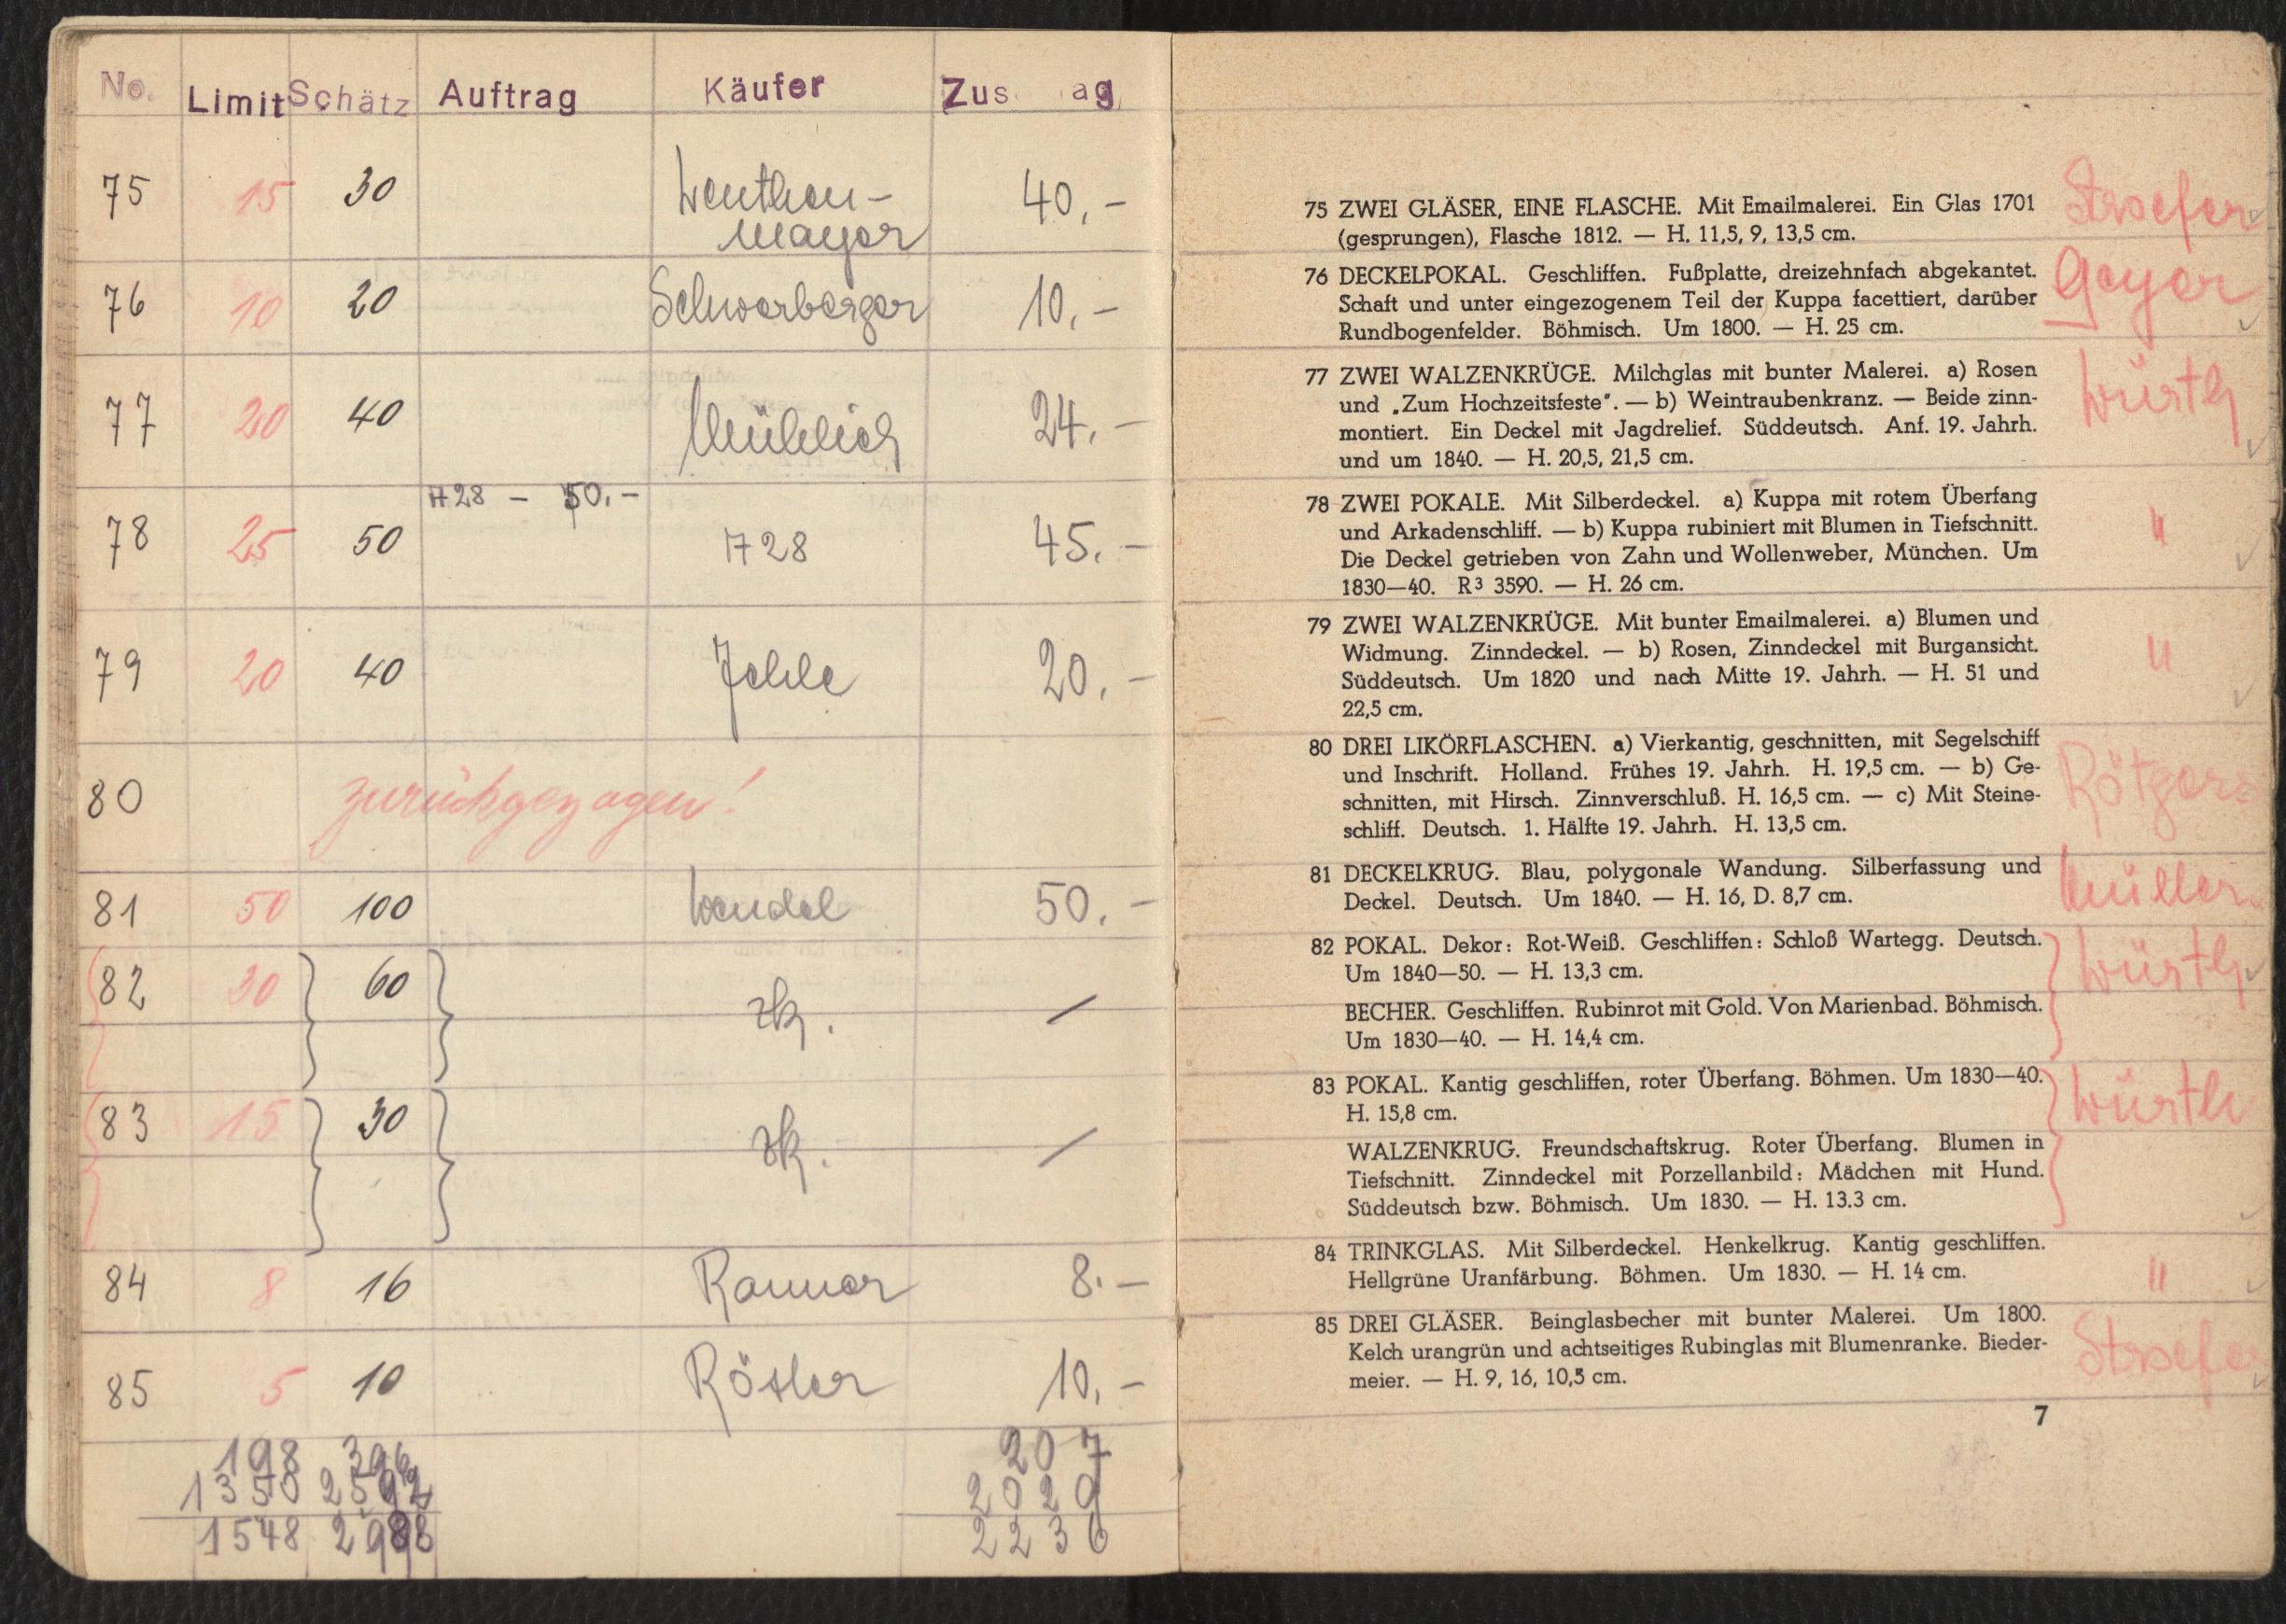 No. Limit Schätz Auftrag Käufer Zus ag
75 15 30 Weuthen- 40,-
Mayer
76 10 20 Schwerberger 10,-
77 20 40 Mühlich 24.-
H28 - 50.-
78 25 50 H28 45.-
79 20 40 Jehle 20.-
80 zurückgezogen!
81 50 100 Wendel 50.-
82 30 } 60 } zk. /
83 15 } 30 } zk. /
84 8 16 Rammer 8.-
85 5 10 Rösler 10,-
198 396 207
1350 2592 2029
1548 2988 2236
75 ZWEI GLÄSER, EINE FLASCHE. Mit Emailmalerei. Ein Glas 1701 Stroefer
(gesprungen), Flasche 1812. — H. 11,5, 9, 13,5 cm.
76 DECKELPOKAL. Geschliffen. Fußplatte, dreizehnfach abgekantet. Geyer
Schaft und unter eingezogenem Teil der Kuppa facettiert, darüber
Rundbogenfelder. Böhmisch. Um 1800. — H. 25 cm.
77 ZWEI WALZENKRÜGE. Milchglas mit bunter Malerei. a) Rosen Würth
und „Zum Hochzeitsfeste". — b) Weintraubenkranz. — Beide zinn-
montiert. Ein Deckel mit Jagdrelief. Süddeutsch. Anf. 19. Jahrh.
und um 1840. — H. 20,5, 21,5 cm.
78 ZWEI POKALE. Mit Silberdeckel. a) Kuppa mit rotem Überfang "
und Arkadenschliff. — b) Kuppa rubiniert mit Blumen in Tiefschnitt.
Die Deckel getrieben von Zahn und Wollenweber, München. Um
1830—40. R3 3590. — H. 26 cm.
79 ZWEI WALZENKRÜGE. Mit bunter Emailmalerei. a) Blumen und "
Widmung. Zinndeckel. — b) Rosen, Zinndeckel mit Burgansicht.
Süddeutsch. Um 1820 und nach Mitte 19. Jahrh. — H. 51 und
22,5 cm.
80 DREI LIKÖRFLASCHEN. a) Vierkantig, geschnitten, mit Segelschiff Rötgers
und Inschrift. Holland. Frühes 19. Jahrh. H. 19,5 cm. — b) Ge-
schnitten, mit Hirsch. Zinnverschluß. H. 16,5 cm. — c) Mit Steine-
schliff. Deutsch. 1. Hälfte 19. Jahrh. H. 13,5 cm.
81 DECKELKRUG. Blau, polygonale Wandung. Silberfassung und Müller
Deckel. Deutsch. Um 1840. — H. 16, D. 8,7 cm.
82 POKAL. Dekor: Rot-Weiß. Geschliffen: Schloß Wartegg. Deutsch. } Würth
Um 1840—50. — H. 13,3 cm.
BECHER. Geschliffen. Rubinrot mit Gold. Von Marienbad. Böhmisch.
Um 1830—40. — H. 14,4 cm.
83 POKAL. Kantig geschliffen, roter Überfang. Böhmen. Um 1830—40. } Würth
H. 15,8 cm.
WALZENKRUG. Freundschaftskrug. Roter Überfang. Blumen in
Tiefschnitt. Zinndeckel mit Porzellanbild: Mädchen mit Hund.
Süddeutsch bzw. Böhmisch. Um 1830. — H. 13.3 cm.
84 TRINKGLAS. Mit Silberdeckel. Henkelkrug. Kantig geschliffen. "
Hellgrüne Uranfärbung. Böhmen. Um 1830. — H. 14 cm.
85 DREI GLÄSER. Beinglasbecher mit bunter Malerei. Um 1800. Stroefer
Kelch urangrün und achtseitiges Rubinglas mit Blumenranke. Bieder-
meier. — H. 9, 16, 10,5 cm.
7